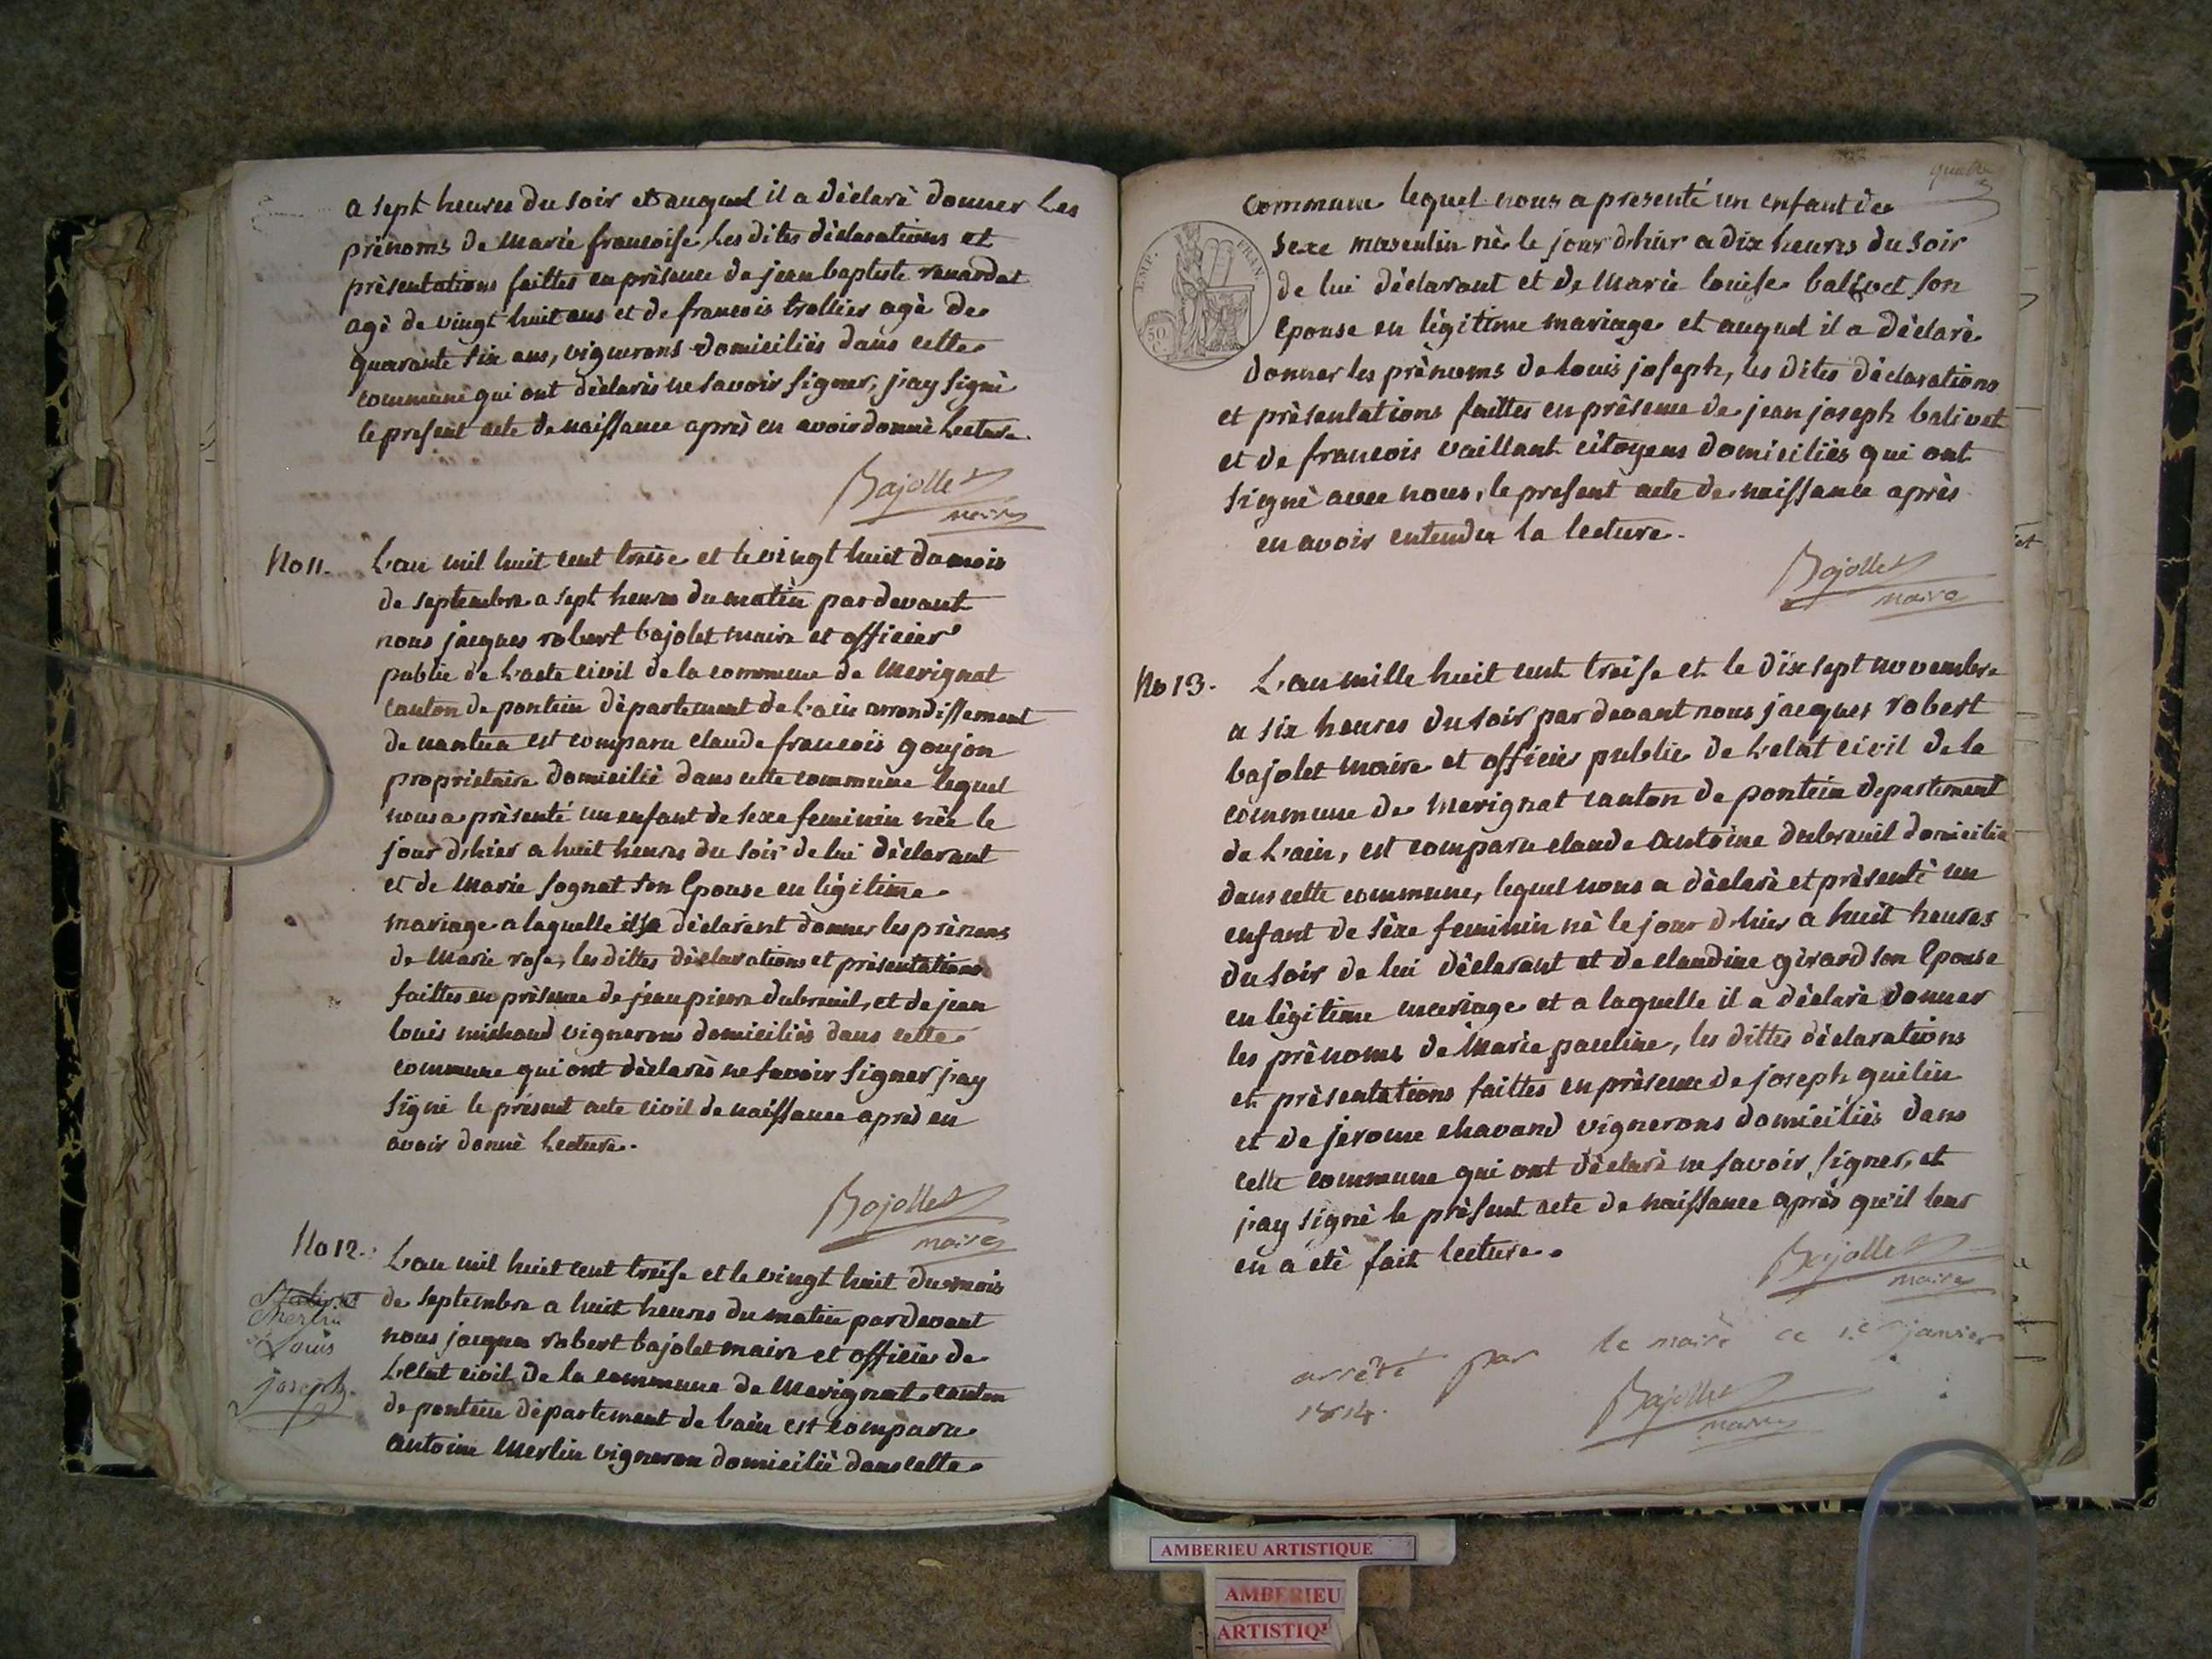 a sept heures du soir et auquel il a déclaré donner les
prénoms de marie francoise les dites déclarations et
présentations faittes en présence de jean baptiste renardat
agé de vingt huit ans et de francois trollier agé de
quarante six ans, vignerons domiciliés dans cette
commune qui ont déclarés ne savoir signer, j'ay signé
le présent acte de naissance après en avoir donné lecture
Bajollet
maire
No 11.
L'an mil huit cent treise et le vingt huit du mois
de septembre a sept heures du matin par devant
nous jacques robert bajolet maire et officier
public de l'acte civil de la commune de Merignat
canton de poncin département de l'ain arrondissement
de nantua est comparu claude francois goujon
propriétaire domicilié dans cette commune lequel
nous a présenté un enfant de sexe feminin née le
jour d'hier a huit heures du soir de lui déclarant
et de Marie sognat son Epouse en légitime
mariage a laquelle déclarent donner les prénoms
de Marie rose, les dittes déclarations et présentations
faittes en présence de jean pierre dubreuil, et de jean
louis michaud vignerons domiciliés dans cette
commune qui ont déclarés ne savoir signer j'ay
signé le présent acte civil de naissance après en
avoir donné lecture.
Bajollet
maire
No 12.
Merlin
Louis
joseph.
L'an mil huit cent treise et le vingt huit du mois
de septembre a huit heures du matin par devant
nous jacques robert bajolet maire et officier de
L'état civil de la commune de Merignat canton
de poncin département de l'ain est comparu
antoine Merlin vigneron domicilié dans cette
quatre
commune lequel nous a presenté un enfant de
EMP. FRAN.
50 C.
sexe masculin né le jour d'hier a dix heures du soir
de lui déclarant et de Marie louise balivet son
Epouse en légitime mariage et auquel il a déclaré
donner les prénoms de louis joseph, les dites déclarations
et présentations faittes en présence de jean joseph balivet
et de francois vaillant citoyens domiciliés qui ont
signé avec nous, le présent acte de naissance après
en avoir entendu la lecture.
Bajollet
maire
No 13.
L'an mille huit cent treise et le dix sept novembre
a six heures du soir par devant nous jacques robert
bajolet maire et officier public de L'etat civil de la
commune de Merignat canton de poncin departement
de L'ain, est comparu claude Antoine dubreuil domicilié
dans cette commune, lequel nous a déclaré et présenté un
enfant de sèxe feminin né le jour d'hier a huit heures
du soir de lui déclarant et de claudine girard son Epouse
en légitime mariage et a laquelle il a déclaré donner
les prénoms de Marie pauline, les dittes déclarations
et présentations faittes en présence de joseph guilin
et de jerome chavand vignerons domiciliés dans
cette commune qui ont déclaré ne savoir signer, et
j'ay signé le présent acte de naissance après qu'il leur
en a été fait lecture.
Bajollet
maire
arrêté par le maire ce 1er janvier
1814.
Bajollet
maire
AMBERIEU ARTISTIQUE
AMBERIEU
ARTISTIQ